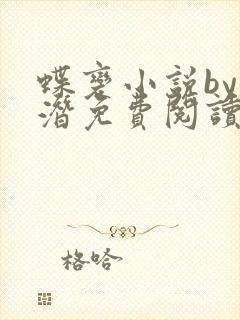 蝶変小说by
潜免費閱讀
格哈